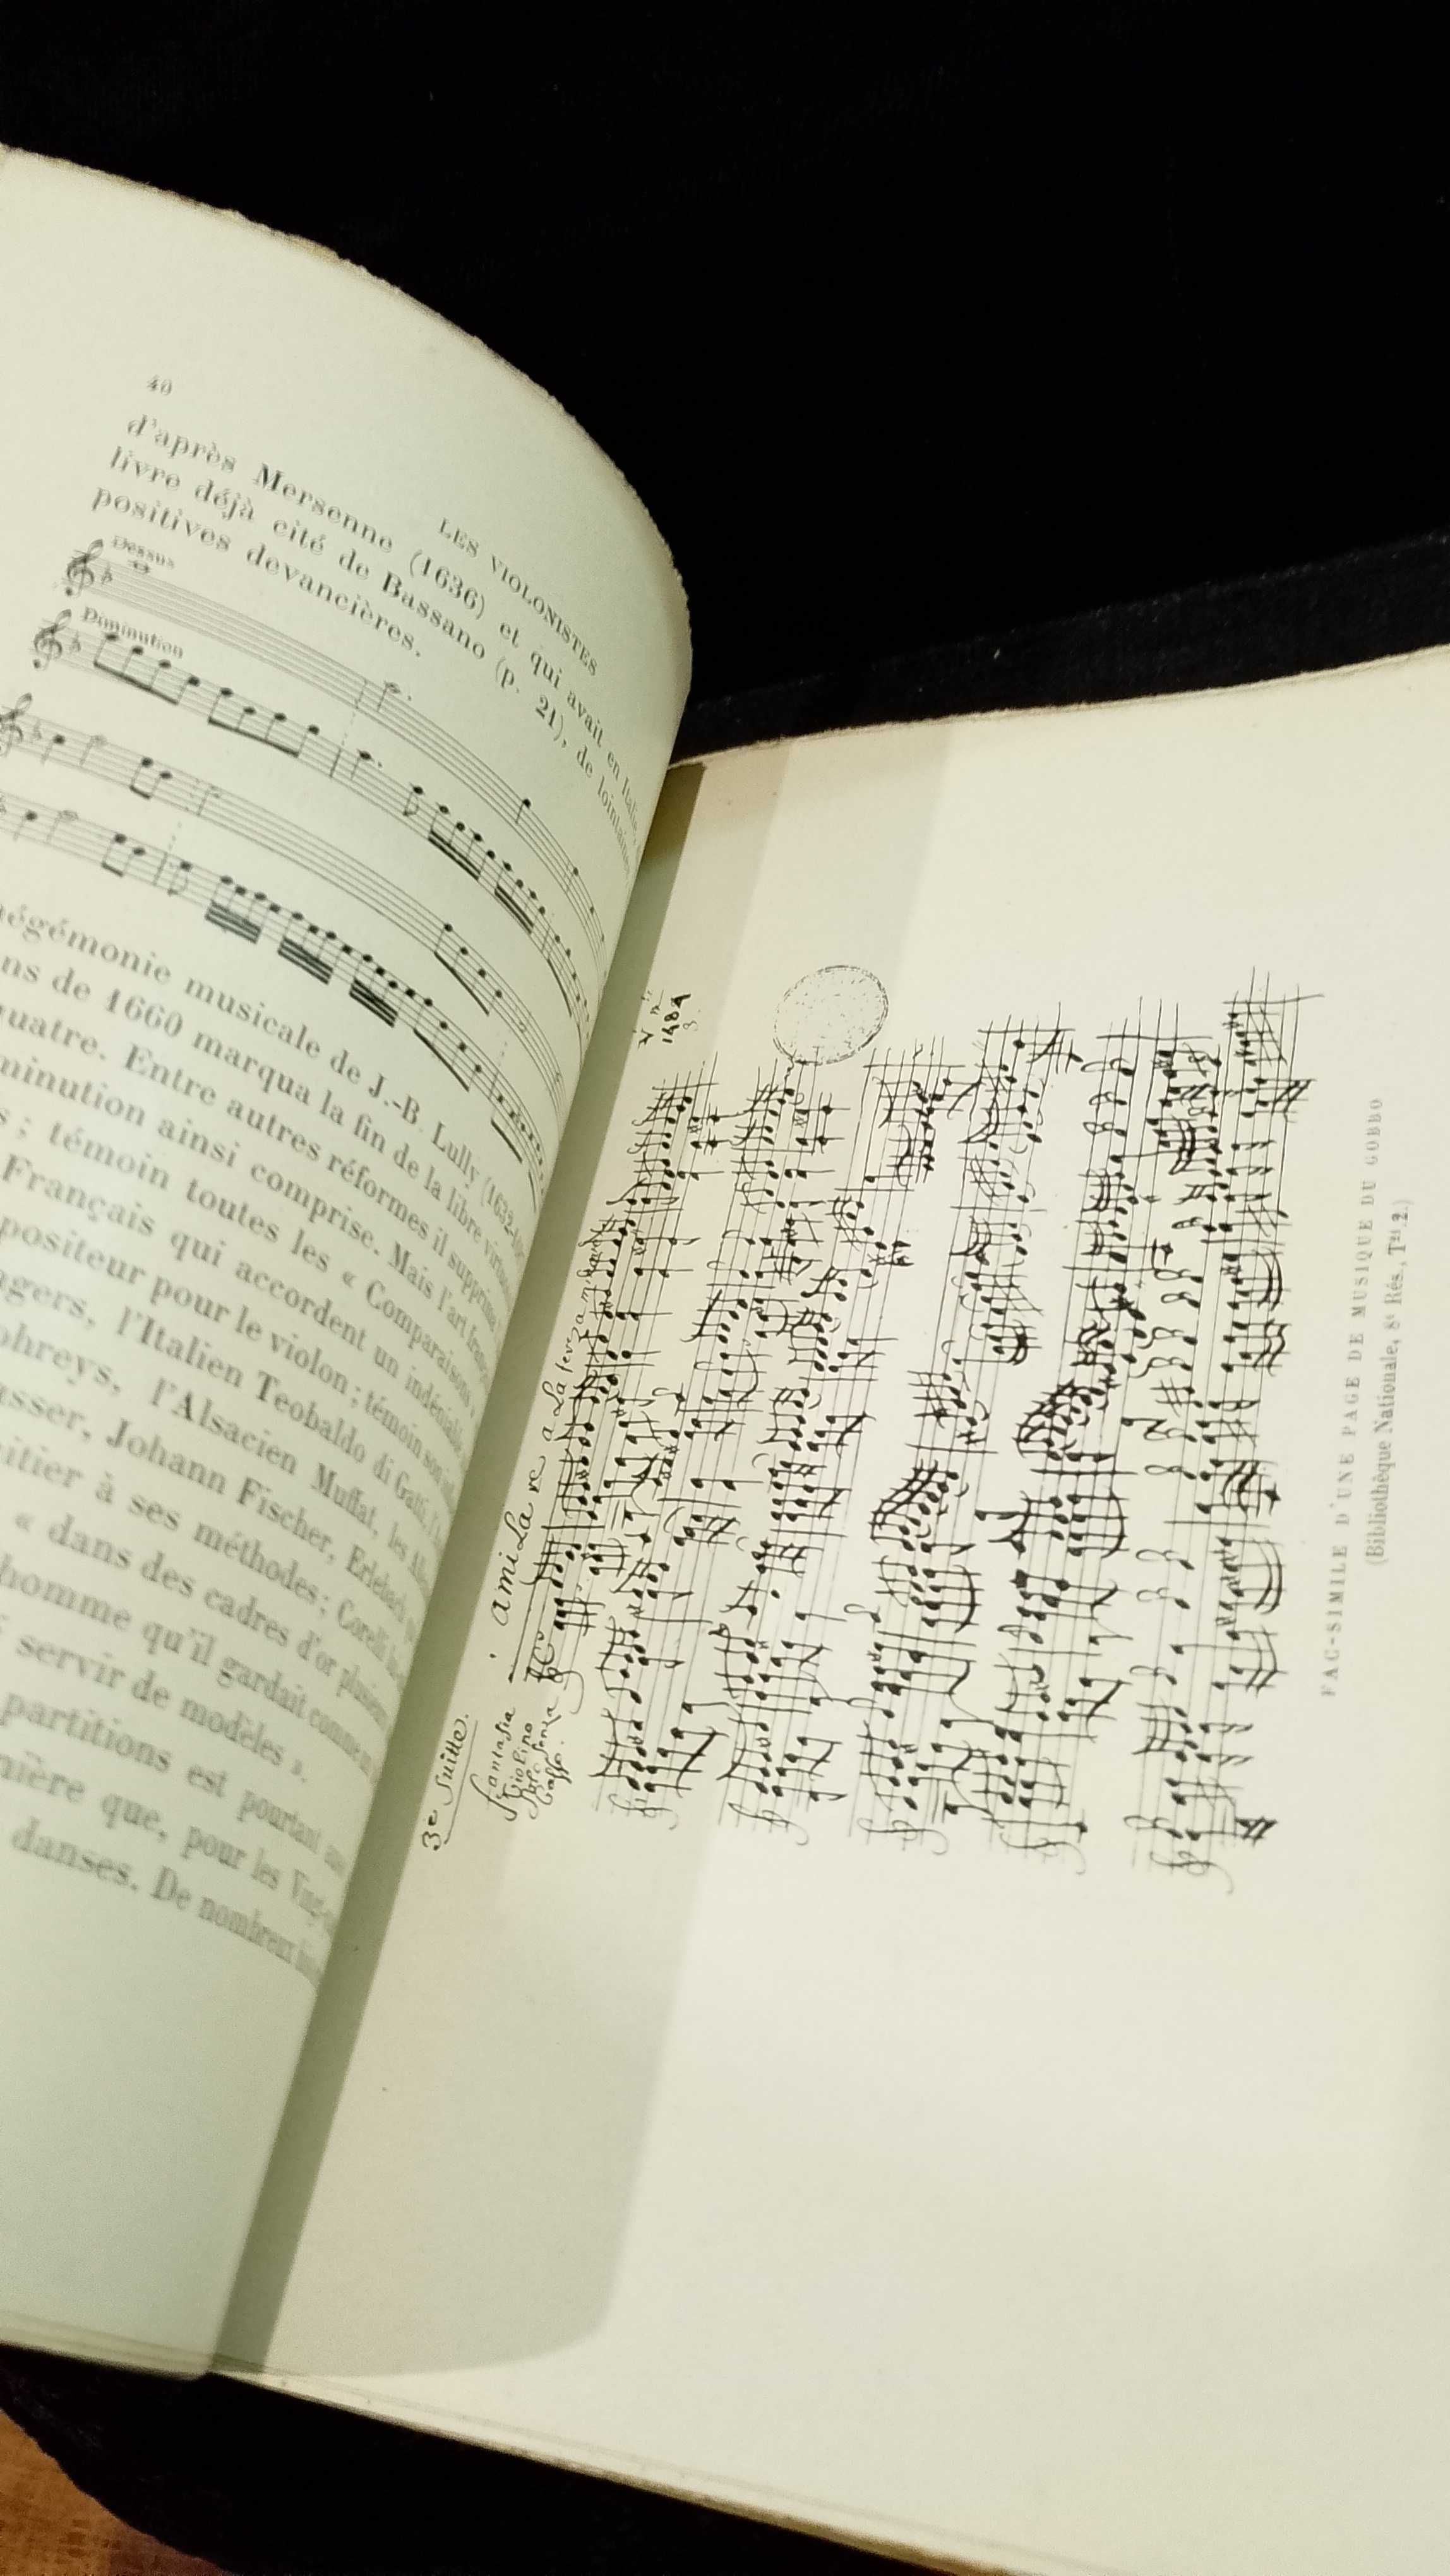 40
LES VIOLONISTES
d'après Mersenne (1636) et qui avait en Italie,
livre déjà cité de Bassano (p. 21), de lointaines
positives devancières.
Dessus
Diminution
hégémonie musicale de J.-B. Lully (1632-
ns de 1660 marqua la fin de la libre
uatre. Entre autres réformes il supprime
minution ainsi comprise. Mais l'art
s ; témoin toutes les « Comparaisons »
Français qui accordent un indéniable
positeur pour le violon ; témoin son
agers, l'Italien Teobaldo di Gatti,
phreys, l'Alsacien Muffat, les
asser, Johann Fischer, Erlebach
itier à ses méthodes ; Corelli
« dans des cadres d'or plusieurs
homme qu'il gardait comme
servir de modèles ».
partitions est pourtant
nière que, pour les Vingt-
danses. De nombreux
3e Suitte.
Fantasia
Violino
Solo Senza
Basso.
ami La re a La
FAC-SIMILE D'UNE PAGE DE MUSIQUE DU GOBBO
(Bibliothèque Nationale, 8e Rés., T21.2.)